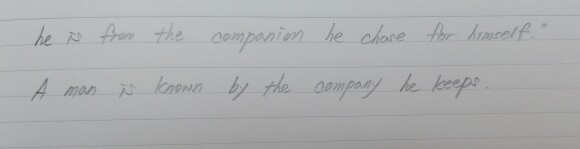 he is from the companion he chose for himself."
A man is known by the company he keeps.